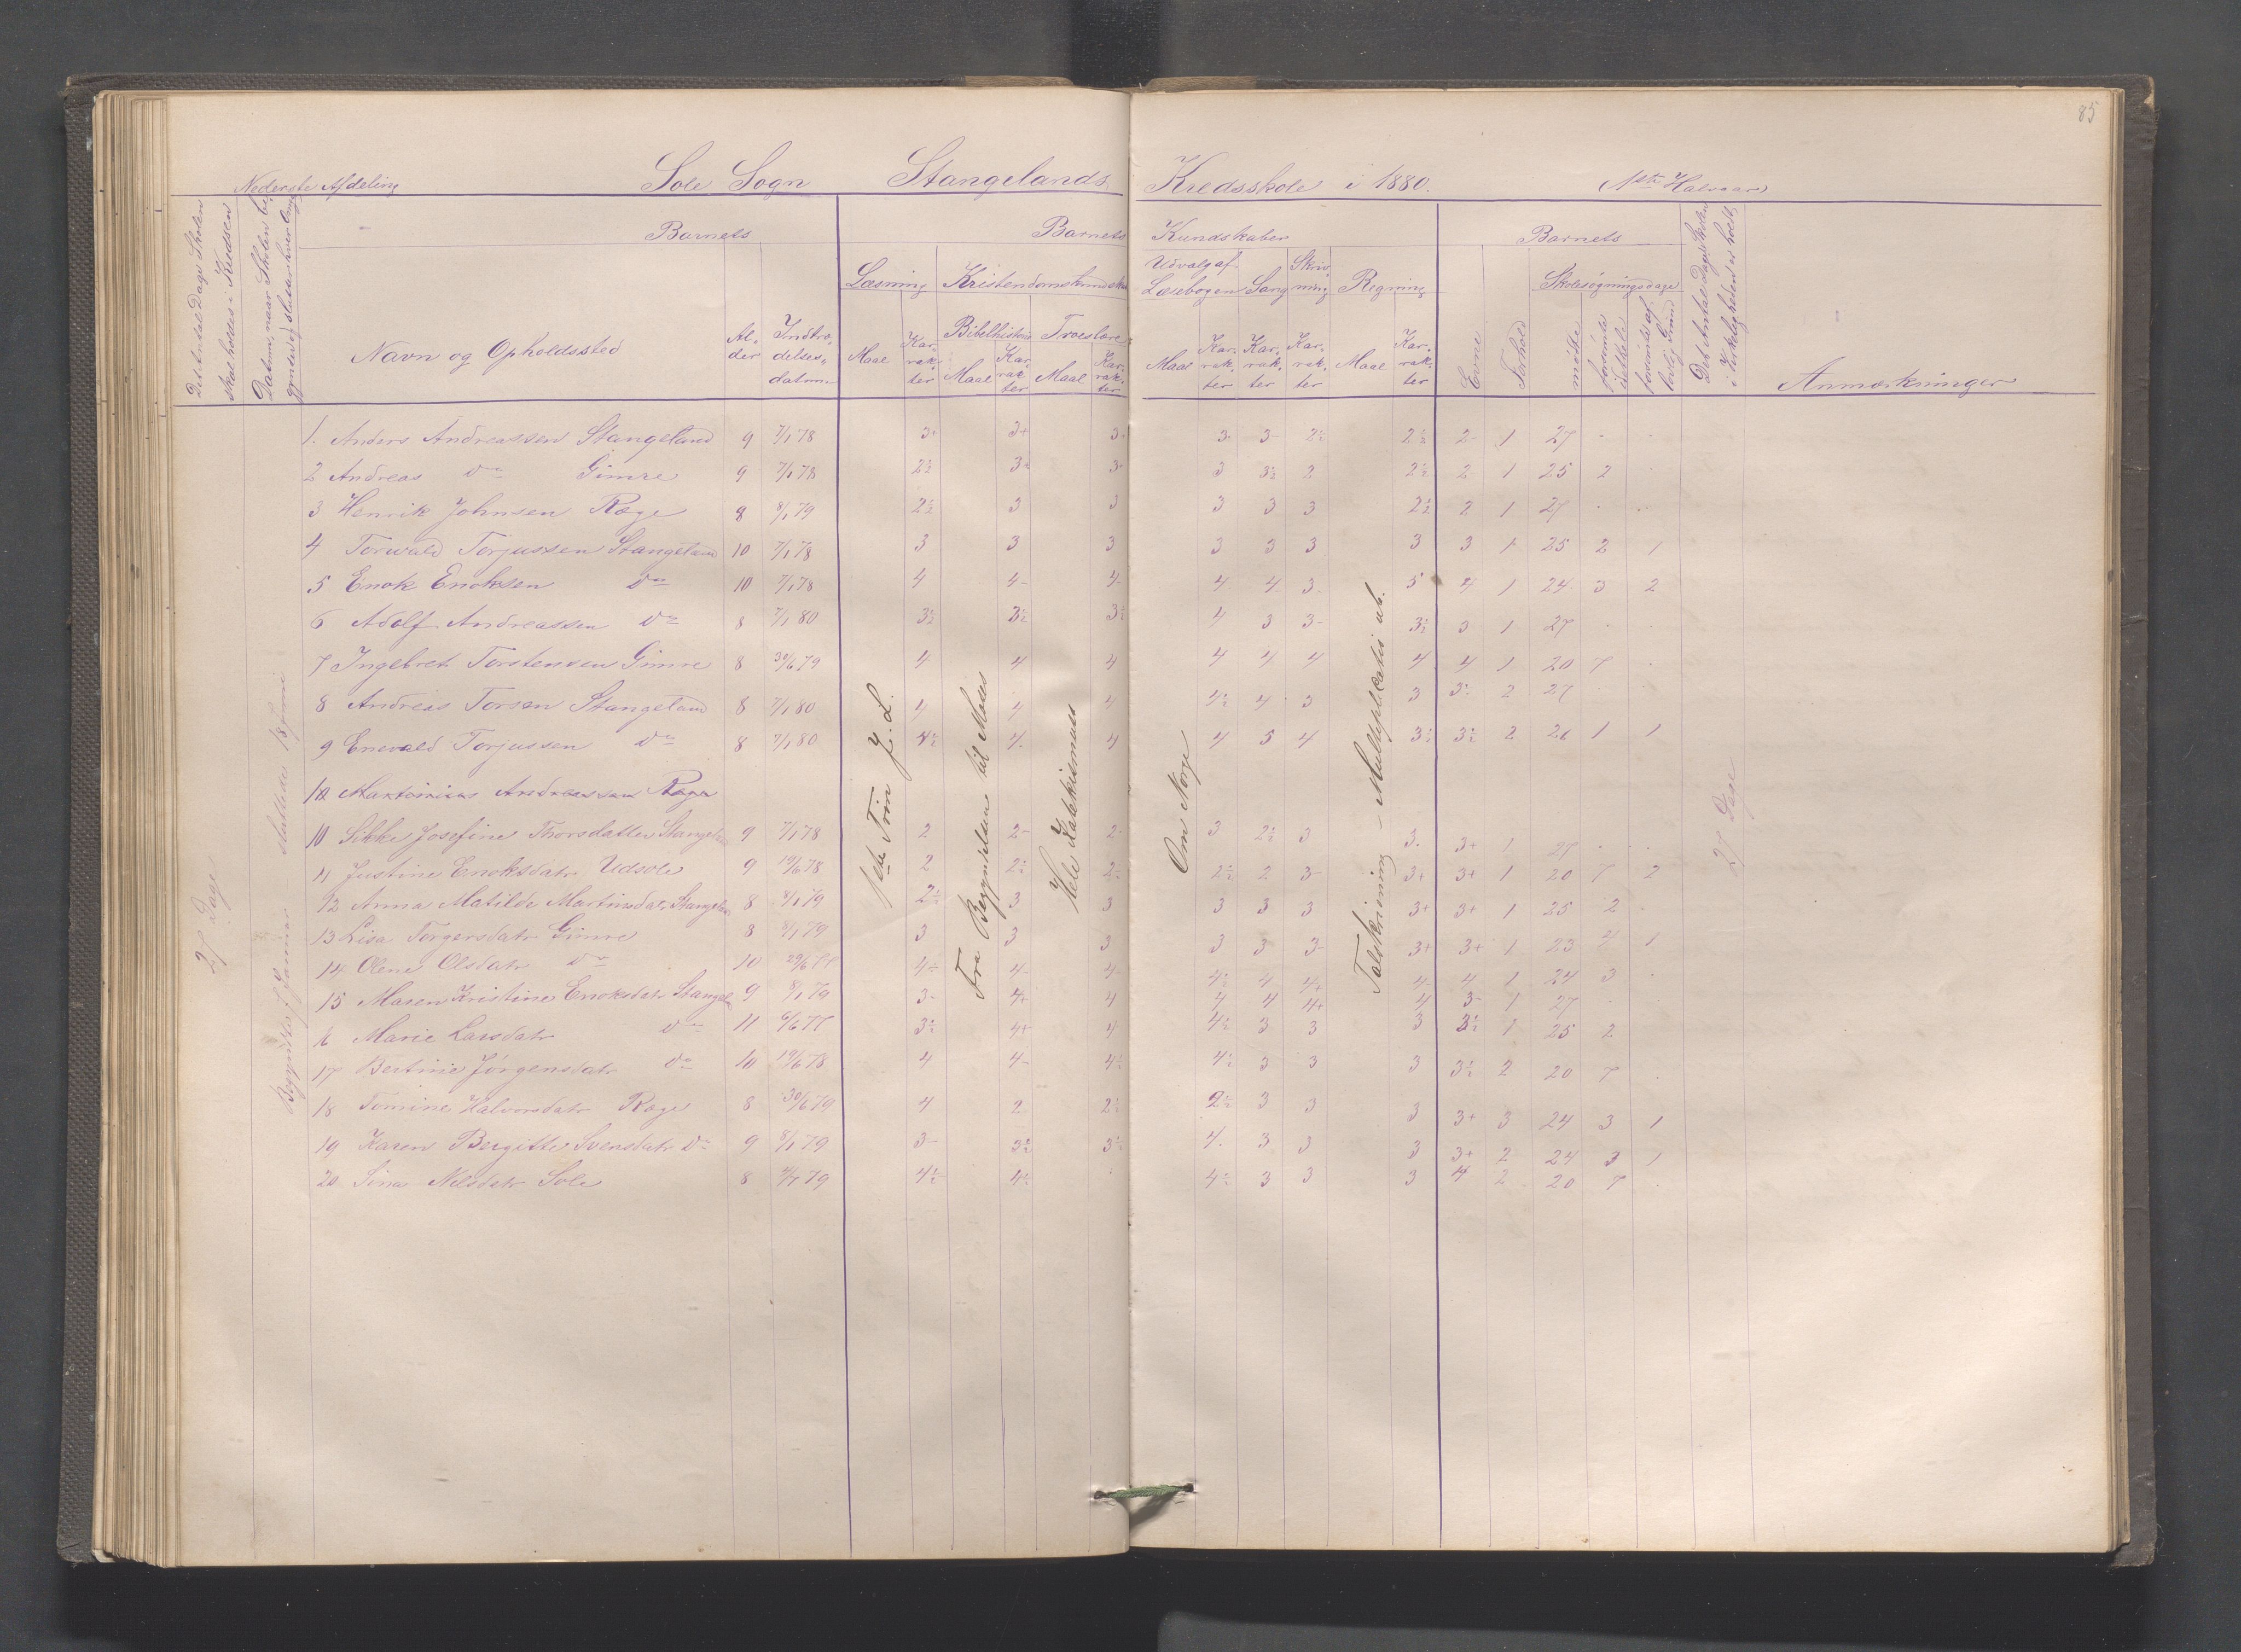 85
Nederste Afdeling Sole Sogn Stangelands Kredsskole i 1880. 1ste Halvaar
Det Antal Dage Skolen skal holdes i Kredsen
Datum, naar Skolen begyndte og sluttede hver Omgang
Barnets
Navn og Opholdssted
Alder
Indtrædelsesdatum
Barnets Kundskaber
Læsning Kristendomskundskab
Maal Karakter
Bibelhistorie Troeslære
Maal Karakter Maal Karakter
Udvalg af Læsebogen Sang Skrivning Regning
Maal Karakter Karakter Karakter Maal Karakter
Barnets
Evne Forhold
Skolesøgningsdage
mødte forsømte i det hele forsømte af lovlig Grund
Det Antal Dage Skolen i Virkeligheden er holdt
Anmærkninger
27 Dage
Begyndte 7 Januar sluttede 18 Juni
1ste Trin J. L.
Fra Begyndelsen til Moses
Hele Katekismus
Om Norge
Talskrivning – Multiplikation
27 Dage
1. Anders Andreassen Stangeland 9 7/1 78 3+ 3+ 3 3 3- 2½ 2½ 2- 1 27 . .
2 Andreas do Gimre 9 7/1 78 2½ 3 3 3 3½ 2 2½ 2 1 25 2 .
3 Henrik Johnsen Ræge 8 8/1 79 2½ 3 3 3 3 3 2½ 2 1 27 . .
4 Torvald Torjussen Stangeland 10 7/1 78 3 3 3 3 3 3 3 3 1 25 2 1
5 Enok Enoksen do 10 7/1 78 4 4- 4- 4 4 3 5 4 1 24 3 2
6 Adolf Andreassen do 8 7/1 80 3½ 3½ 3½ 4 3 3- 3½ 3 1 27 . .
7 Ingebret Torstensen Gimre 8 30/6 79 4 4 4 4 4 4 4 4 1 20 7 .
8 Andreas Torsen Stangeland 8 7/1 80 4 4 4 4½ 4 3 3 3½ 2 27 . .
9 Enevald Torjussen do 8 7/1 80 4½ 4 4 4 5 4 3½ 3½ 2 26 1 1
10 Martinius Andreassen Ræge
10 Sikke Josefine Thorsdatter Stangeland 9 7/1 78 2 2- 2- 3 2½ 3 3. 3+ 1 27 . .
11 Justine Enoksdatr Udsole 9 19/6 78 2 2½ 2½ 2½ 2 3- 3+ 3+ 1 20 7 2
12 Anna Matilde Martinsdatr Stangeland 8 8/1 79 2½ 3 3 3 3 3 3+ 3+ 1 25 2 .
13 Lisa Torgersdatr Gimre 8 8/1 79 3 3 3 3 3 3- 3+ 3+ 1 23 4 1
14 Olene Olsdatr do 10 29/6 77 4½ 4- 4- 4½ 4 4+ 4 4 1 24 3 .
15 Maren Kristine Enoksdatr Stangel 9 8/1 79 3- 4+ 4 4 4 4+ 4 3- 1 27 .
16 Marie Larsdatr do 11 6/6 77 3½ 4+ 4 4½ 3 3 3 3½ 1 25 2
17 Bertine Jörgensdatr do 10 19/6 78 4 4- 4½ 4½ 3 3 3 3½ 2 20 7 .
18 Tomine Halvorsdatr Ræge 8 30/6 79 4 2 2½ 2½ 3 3 3 3+ 3 24 3 1
19 Karen Bergitte Svensdatr do 9 8/1 79 3- 3½ 3½ 4. 3 3 3 3+ 2 24 3 1
20 Sina Nilsdatr Sole 8 79 4½ 4½ . 4½ 3 3 3 4 2 20 7 .